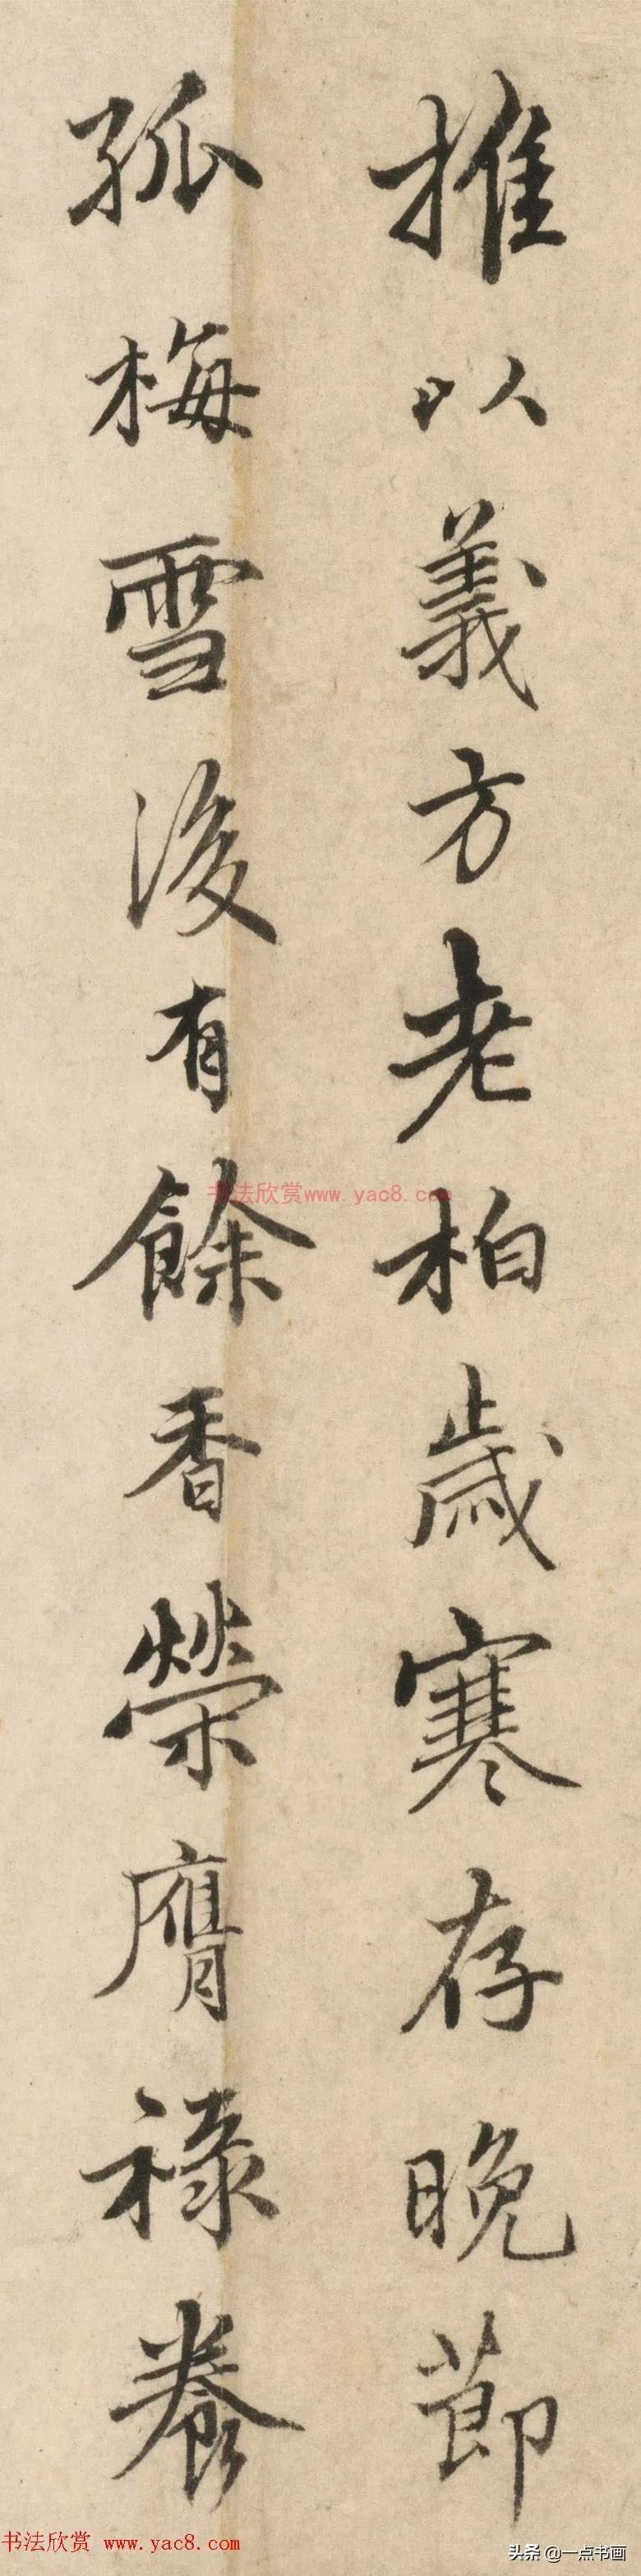 推以義方老柏歲寒存晚節
孤梅雪後有餘香榮膺祿養
书法欣赏www.yac8.com
书法欣赏 www.yac8.com
头条 @一点书画